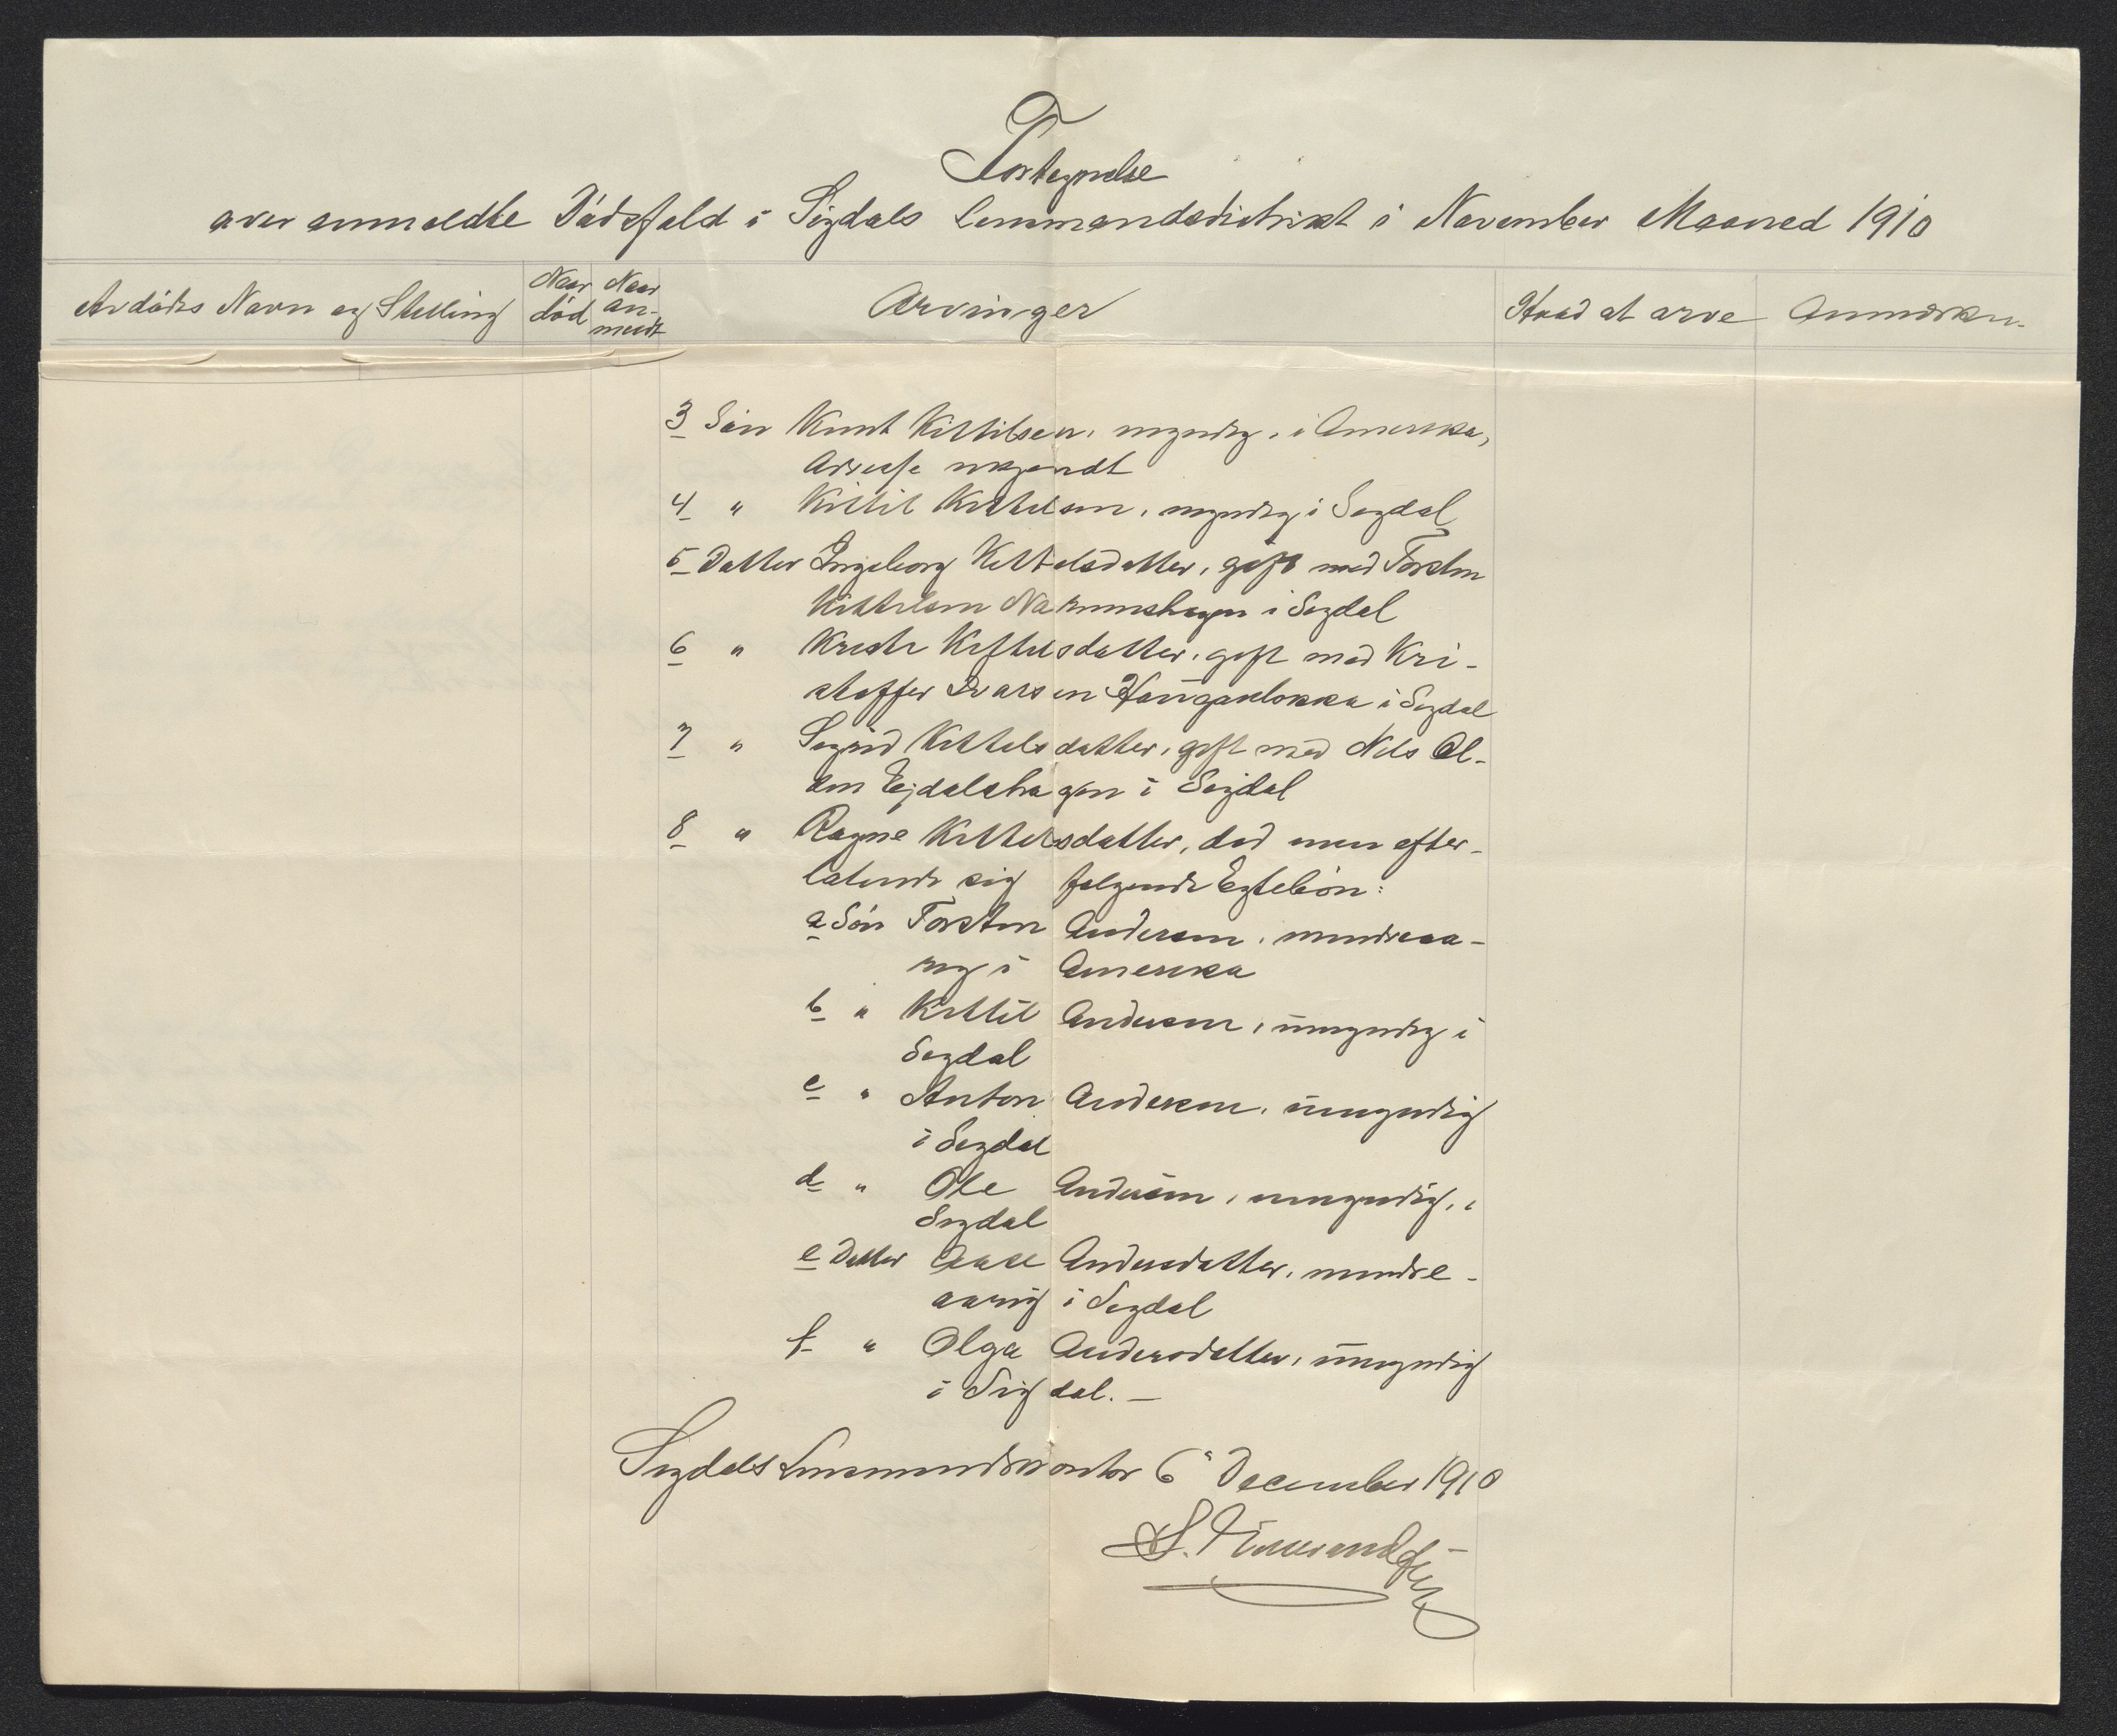 Fortegnelse
over anmeldte Dødsfald i Sigdals Lensmandsdistrikt i November Maaned 1910
Avdødes Navn og Stilling
Naar død
Naar anmeldt
Arvinger
Hvad at arve
Anmærkn.
3 Søn Knut Kittilsen, myndig, i Amerika,
Adresse ukjendt
4 " Kittil Kittelsen, myndig i Sigdal
5 Datter Ingeborg Kittelsdatter, gift med Torsten
Kittelsen i Sigdal
6 " Kristi Kittelsdatter, gift med Kri-
stoffer Ivarsen i Sigdal
7 " Sigrid Kittelsdatter, gift med Nils Ol-
sen Ejdalshagen i Sigdal
8 " Ragne Kittelsdatter, død men efter-
latende sig følgende Egtebörn:
a Søn Torsten Andersen, mindreaa-
rig i Amerika
b " Kittil Andersen, umyndig i
Sigdal
c " Anton Andersen, umyndig
i Sigdal
d " Ole Andersen, umyndig, i
Sigdal
e Datter Aase Andersdatter, mindre-
aarig i Sigdal
f " Olga Andersdatter, umyndig
i Sigdal. —
Sigdals Lensmandskontor 6 December 1910